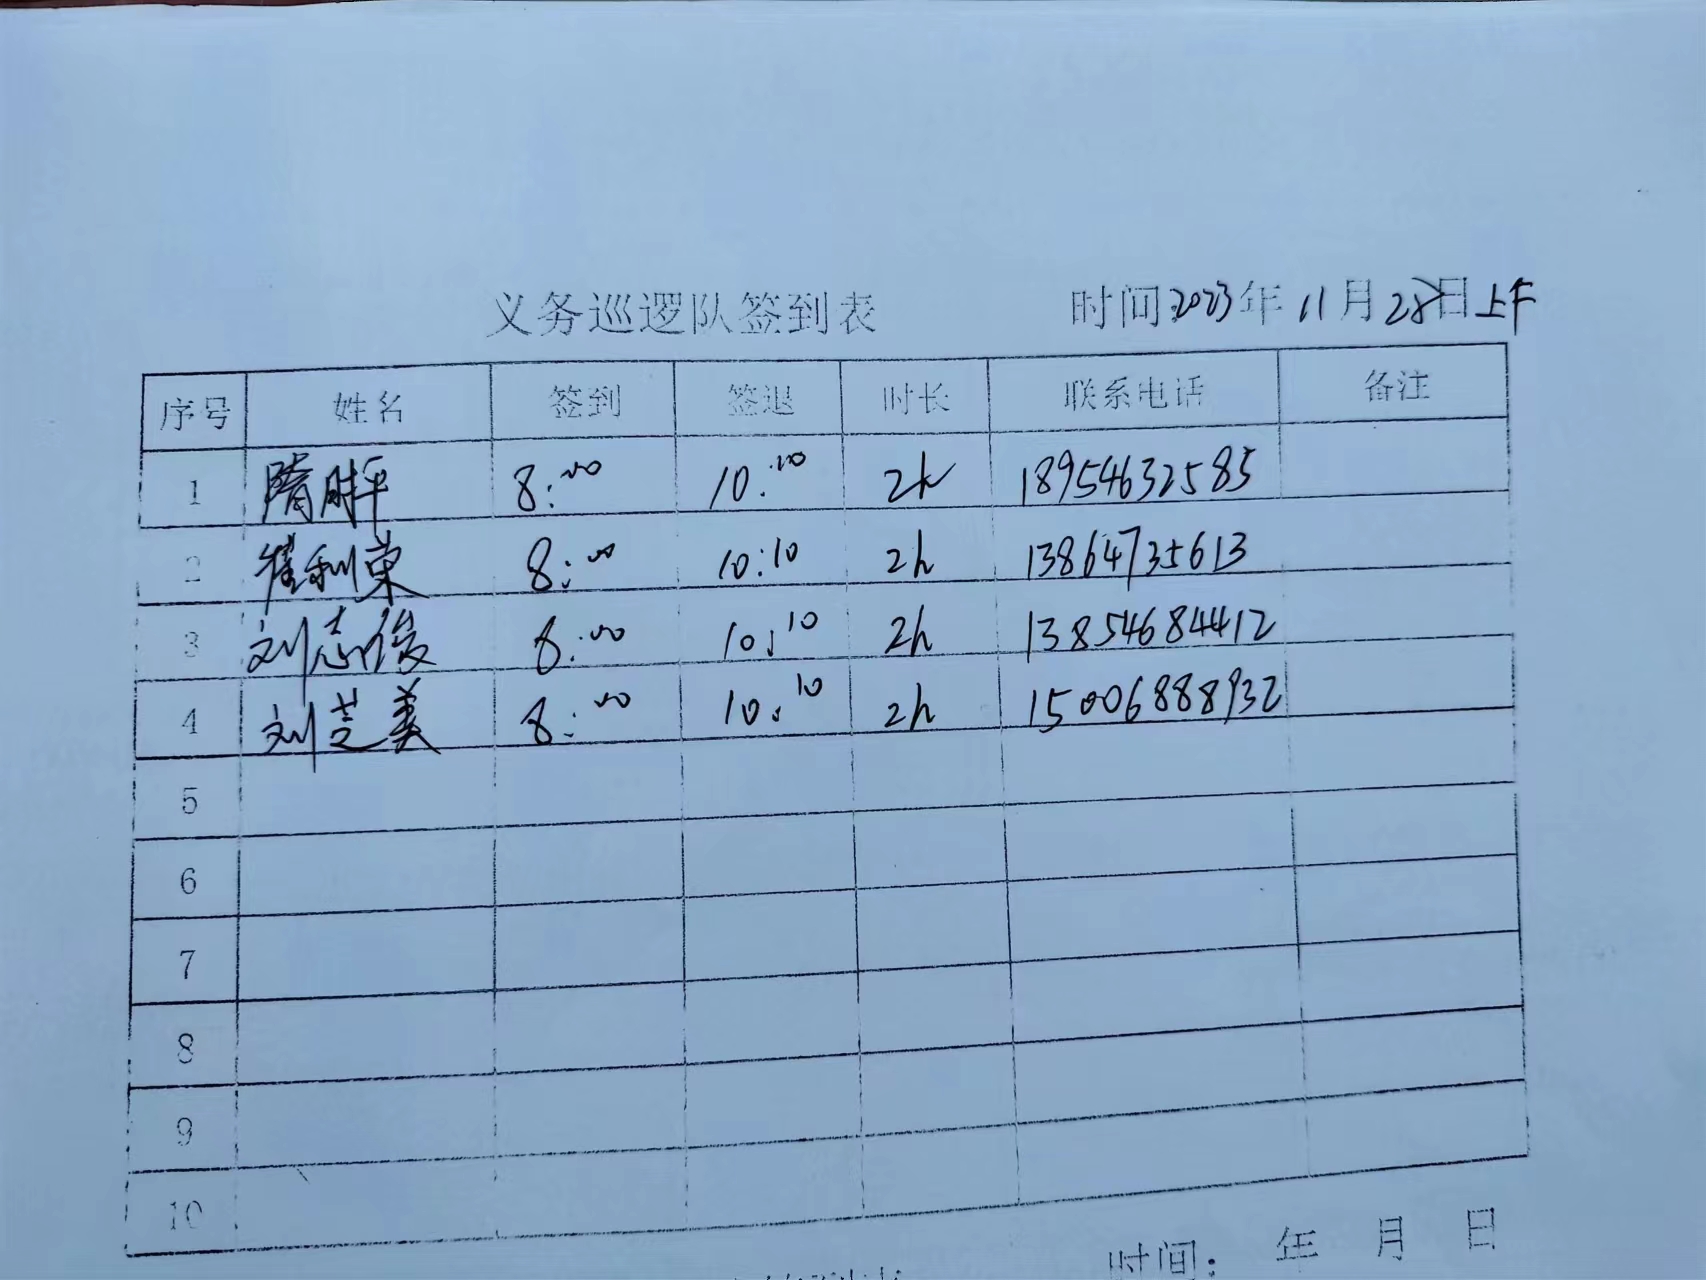 义务巡逻队签到表 时间:2023年11月28日上午
序号 姓名 签到 签退 时长 联系电话 备注
1 隋胜平 8:00 10:10 2h 18954632585
2 崔利荣 8:00 10:10 2h 13864735613
3 刘志俊 8:00 10:10 2h 13854684412
4 刘芝美 8:00 10:10 2h 15006888932
5
6
7
8
9
10
时间: 年 月 日